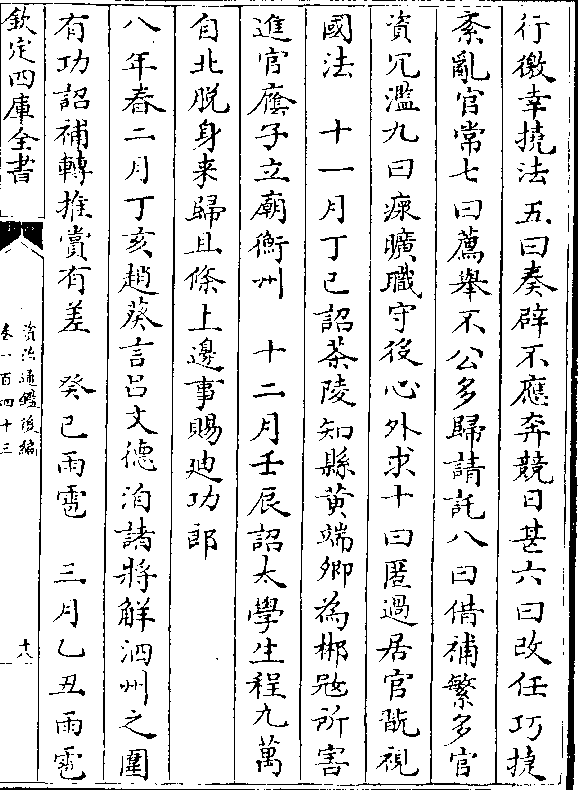 行徼幸撓法五曰奏辟不應奔競日甚六曰改任巧捷
紊亂官常七曰薦舉不公多歸請託八曰借補繁多官
資冗濫九曰瘝曠職守役心外求十曰匿過居官翫視
國法　十一月丁巳詔茶陵知縣黃端卿為郴宼所害
進官廕子立廟衡州　十二月壬辰詔太學生程九萬
自北脱身来歸且條上邊事賜廸功郎
八年春二月丁亥趙葵言吕文德洎諸將解泗州之圍
有功詔補轉推賞有差　癸巳雨雹　三月乙丑雨雹
欽定四庫全書
資治通鑑後編
卷一百四十三
十八